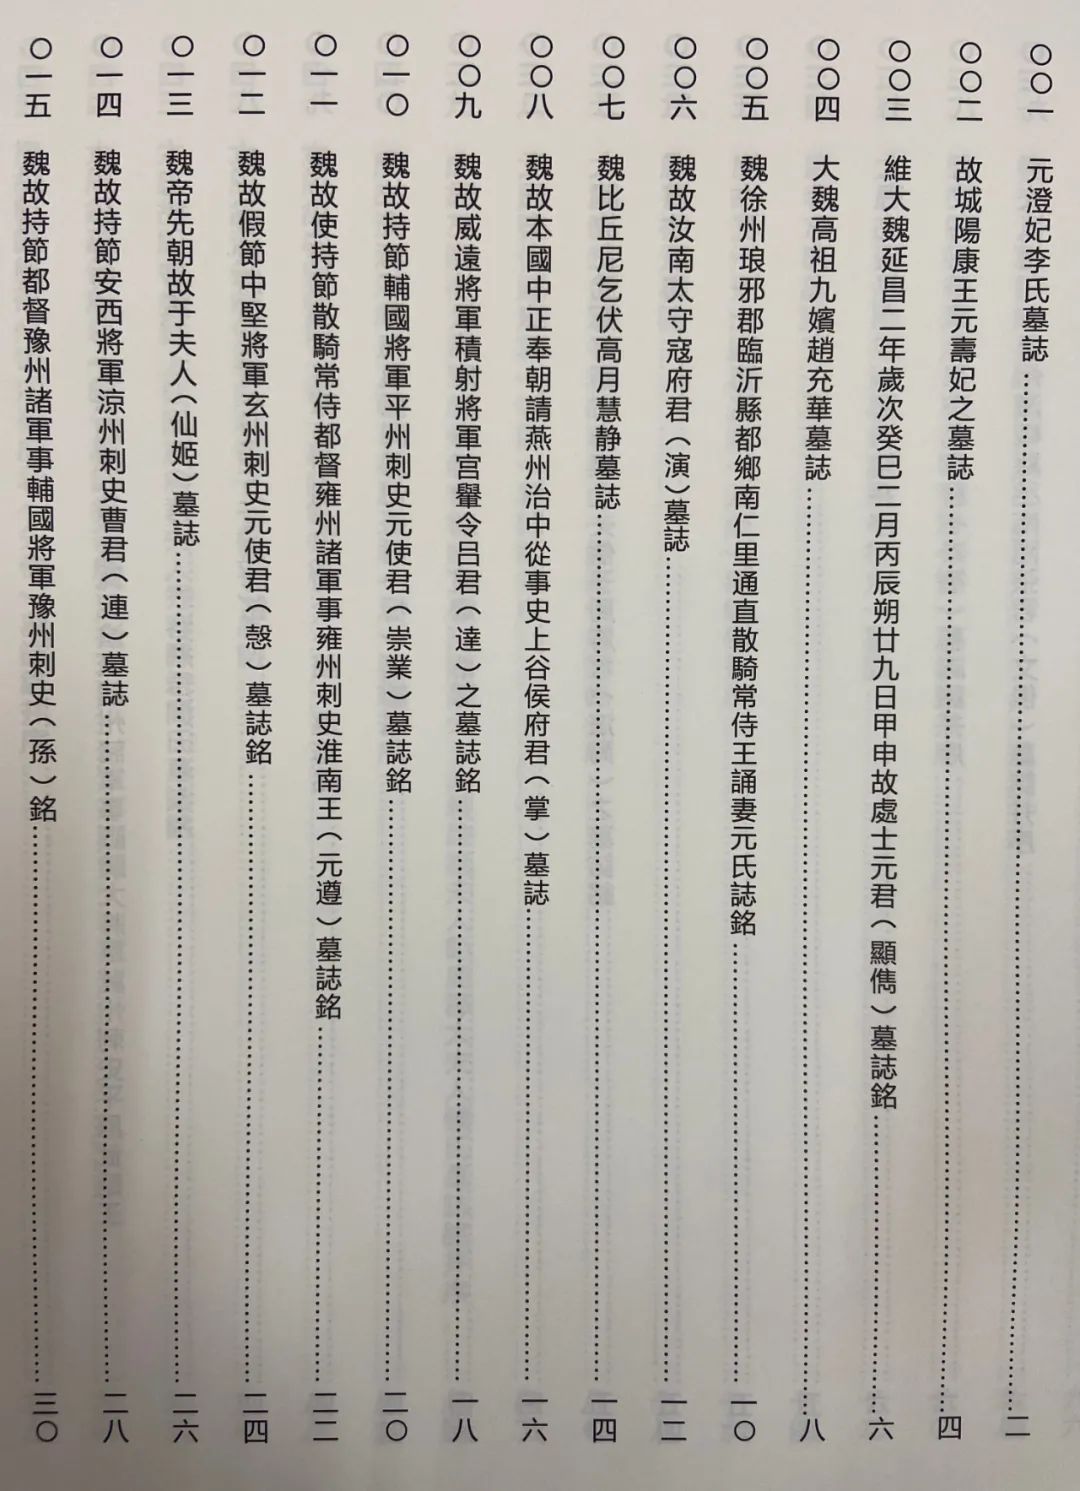 〇〇一 元澄妃李氏墓誌……二
〇〇二 故城陽康王元壽妃之墓誌……四
〇〇三 維大魏延昌二年歲次癸巳二月丙辰朔廿九日甲申故處士元君（顯儁）墓誌銘……六
〇〇四 大魏高祖九嬪趙充華墓誌……八
〇〇五 魏徐州琅邪郡臨沂縣都鄉南仁里通直散騎常侍王誦妻元氏誌銘……一〇
〇〇六 魏故汝南太守寇府君（演）墓誌……一二
〇〇七 魏比丘尼乞伏高月慧静墓誌……一四
〇〇八 魏故本國中正奉朝請燕州治中從事史上谷侯府君（掌）墓誌……一六
〇〇九 魏故威遠將軍積射將軍宫轝令吕君（達）之墓誌銘……一八
〇一〇 魏故持節輔國將軍平州刺史元使君（崇業）墓誌銘……二〇
〇一一 魏故使持節散騎常侍都督雍州諸軍事雍州刺史淮南王（元遵）墓誌銘……二二
〇一二 魏故假節中堅將軍玄州刺史元使君（愨）墓誌銘……二四
〇一三 魏帝先朝故于夫人（仙姬）墓誌……二六
〇一四 魏故持節安西將軍涼州刺史曹君（連）墓誌……二八
〇一五 魏故持節都督豫州諸軍事輔國將軍豫州刺史（孫）銘……三〇